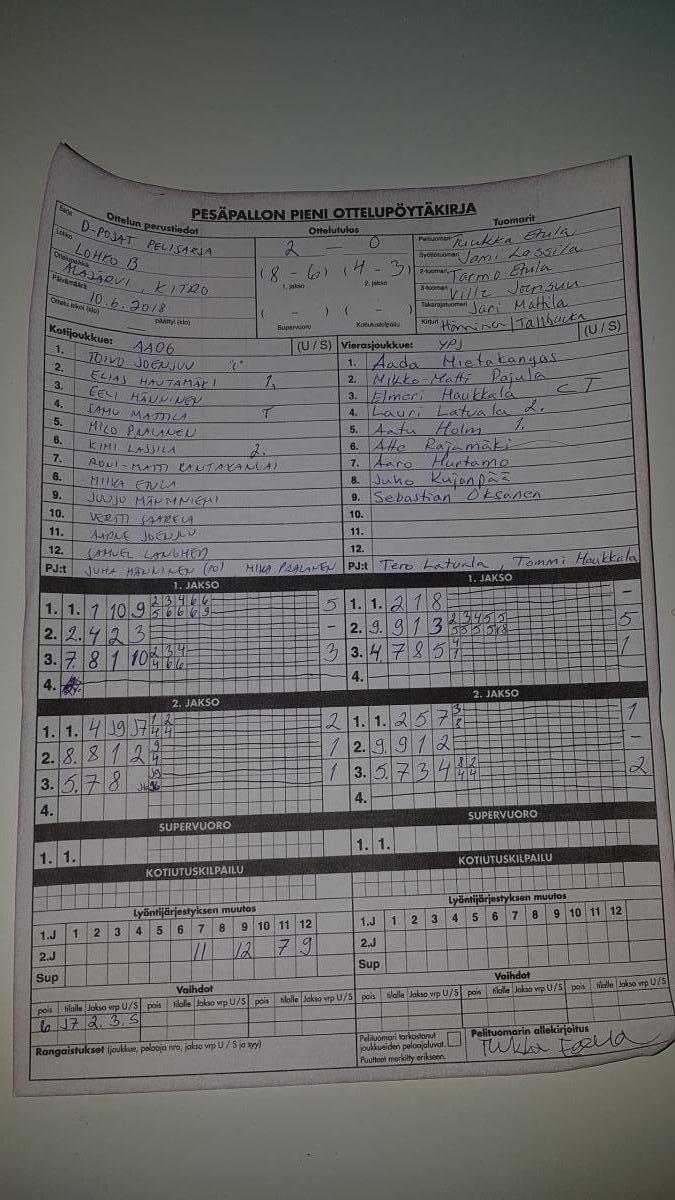 PESÄPALLON PIENI OTTELUPÖYTÄKIRJA
Ottelun perustiedot
Sarja D-POJAT PELISARJA
Lohko LOHKO B
Ottelupaikka ALAJÄRVI, KITRO
Päivämäärä 10.6.2018
Ottelu alkoi (klo) päättyi (klo)
Ottelutulos
2 — 0
(8 - 6) (4 - 3)
1. jakso 2. jakso
( - ) ( - )
Supervuoro Kotiutuskilpailu
Tuomarit
Pelituomari Tuukka Etula
Syöttötuomari Jami Lassila
2-tuomari Tarmo Etula
3-tuomari Ville Joensuu
Takarajatuomari Jari Mattila
Kirjuri Hänninen / Tallbacka
Kotijoukkue: AA06 (U / S)
1. TOIVO JOENSUU "C"
2. ELIAS HAUTAMÄKI 1.
3. EELI HÄNNINEN
4. SAMU MATTILA T
5. MICO PAALANEN
6. KIMI LASSILA 2.
7. RONI-MATTI RANTAKANGAS
8. MIIKA ETULA
9. JUUSO MÄNNINIEMI
10. VERTTI SAARELA
11. AARNE JOENSUU
12. SAMUEL
PJ:t JUHA HÄNNINEN (PJ) MIKA PAALANEN
Vierasjoukkue: YPJ (U / S)
1. Aada Mietakangas
2. Mikko-Matti Pajula
3. Elmeri Haukkala C T
4. Lauri Latvala 2.
5. Aatu Holm 1.
6. Atte Rajamäki
7. Aaro Hurtamo
8. Juho Kujanpää
9. Sebastian Oksanen
10.
11.
12.
PJ:t Tero Latvala, Tommi Haukkala
1. JAKSO
1. 1. 1 10 9 2 3 4 6 6 5
5 6 6 6 9
2. 2. 4 2 3 -
3. 7. 8 1 10 2 3 4 3
4 6 6
4.
1. JAKSO
1. 1. 2 1 8 -
2. 9. 9 1 3 2 3 4 5 5 5
3. 4. 7 8 5 4 1
1
4.
2. JAKSO
1. 1. 4 J9 J7 1 2 2
4 4
2. 8. 8 1 2 9 1
4
3. 5. 7 8 J9 1
4.
2. JAKSO
1. 1. 2 5 7 3 1
8
2. 9. 9 1 2 -
3. 5. 7 3 4 8 2 2
4 4
4.
SUPERVUORO
1. 1.
SUPERVUORO
1. 1.
KOTIUTUSKILPAILU
KOTIUTUSKILPAILU
Lyöntijärjestyksen muutos
1.J 1 2 3 4 5 6 7 8 9 10 11 12
2.J 11 12 7 9
Sup
Lyöntijärjestyksen muutos
1.J 1 2 3 4 5 6 7 8 9 10 11 12
2.J
Sup
Vaihdot
pois tilalle Jakso vrp U / S pois tilalle Jakso vrp U / S pois tilalle Jakso vrp U / S
6 J7 2. 3. S
Vaihdot
pois tilalle Jakso vrp U / S pois tilalle Jakso vrp U / S pois tilalle Jakso vrp U / S
Rangaistukset (joukkue, pelaaja nro, jakso vrp U / S ja syy)
Pelituomari tarkastanut
joukkueiden pelaajaluvat.
Puutteet merkitty erikseen.
Pelituomarin allekirjoitus
Tuukka Etula